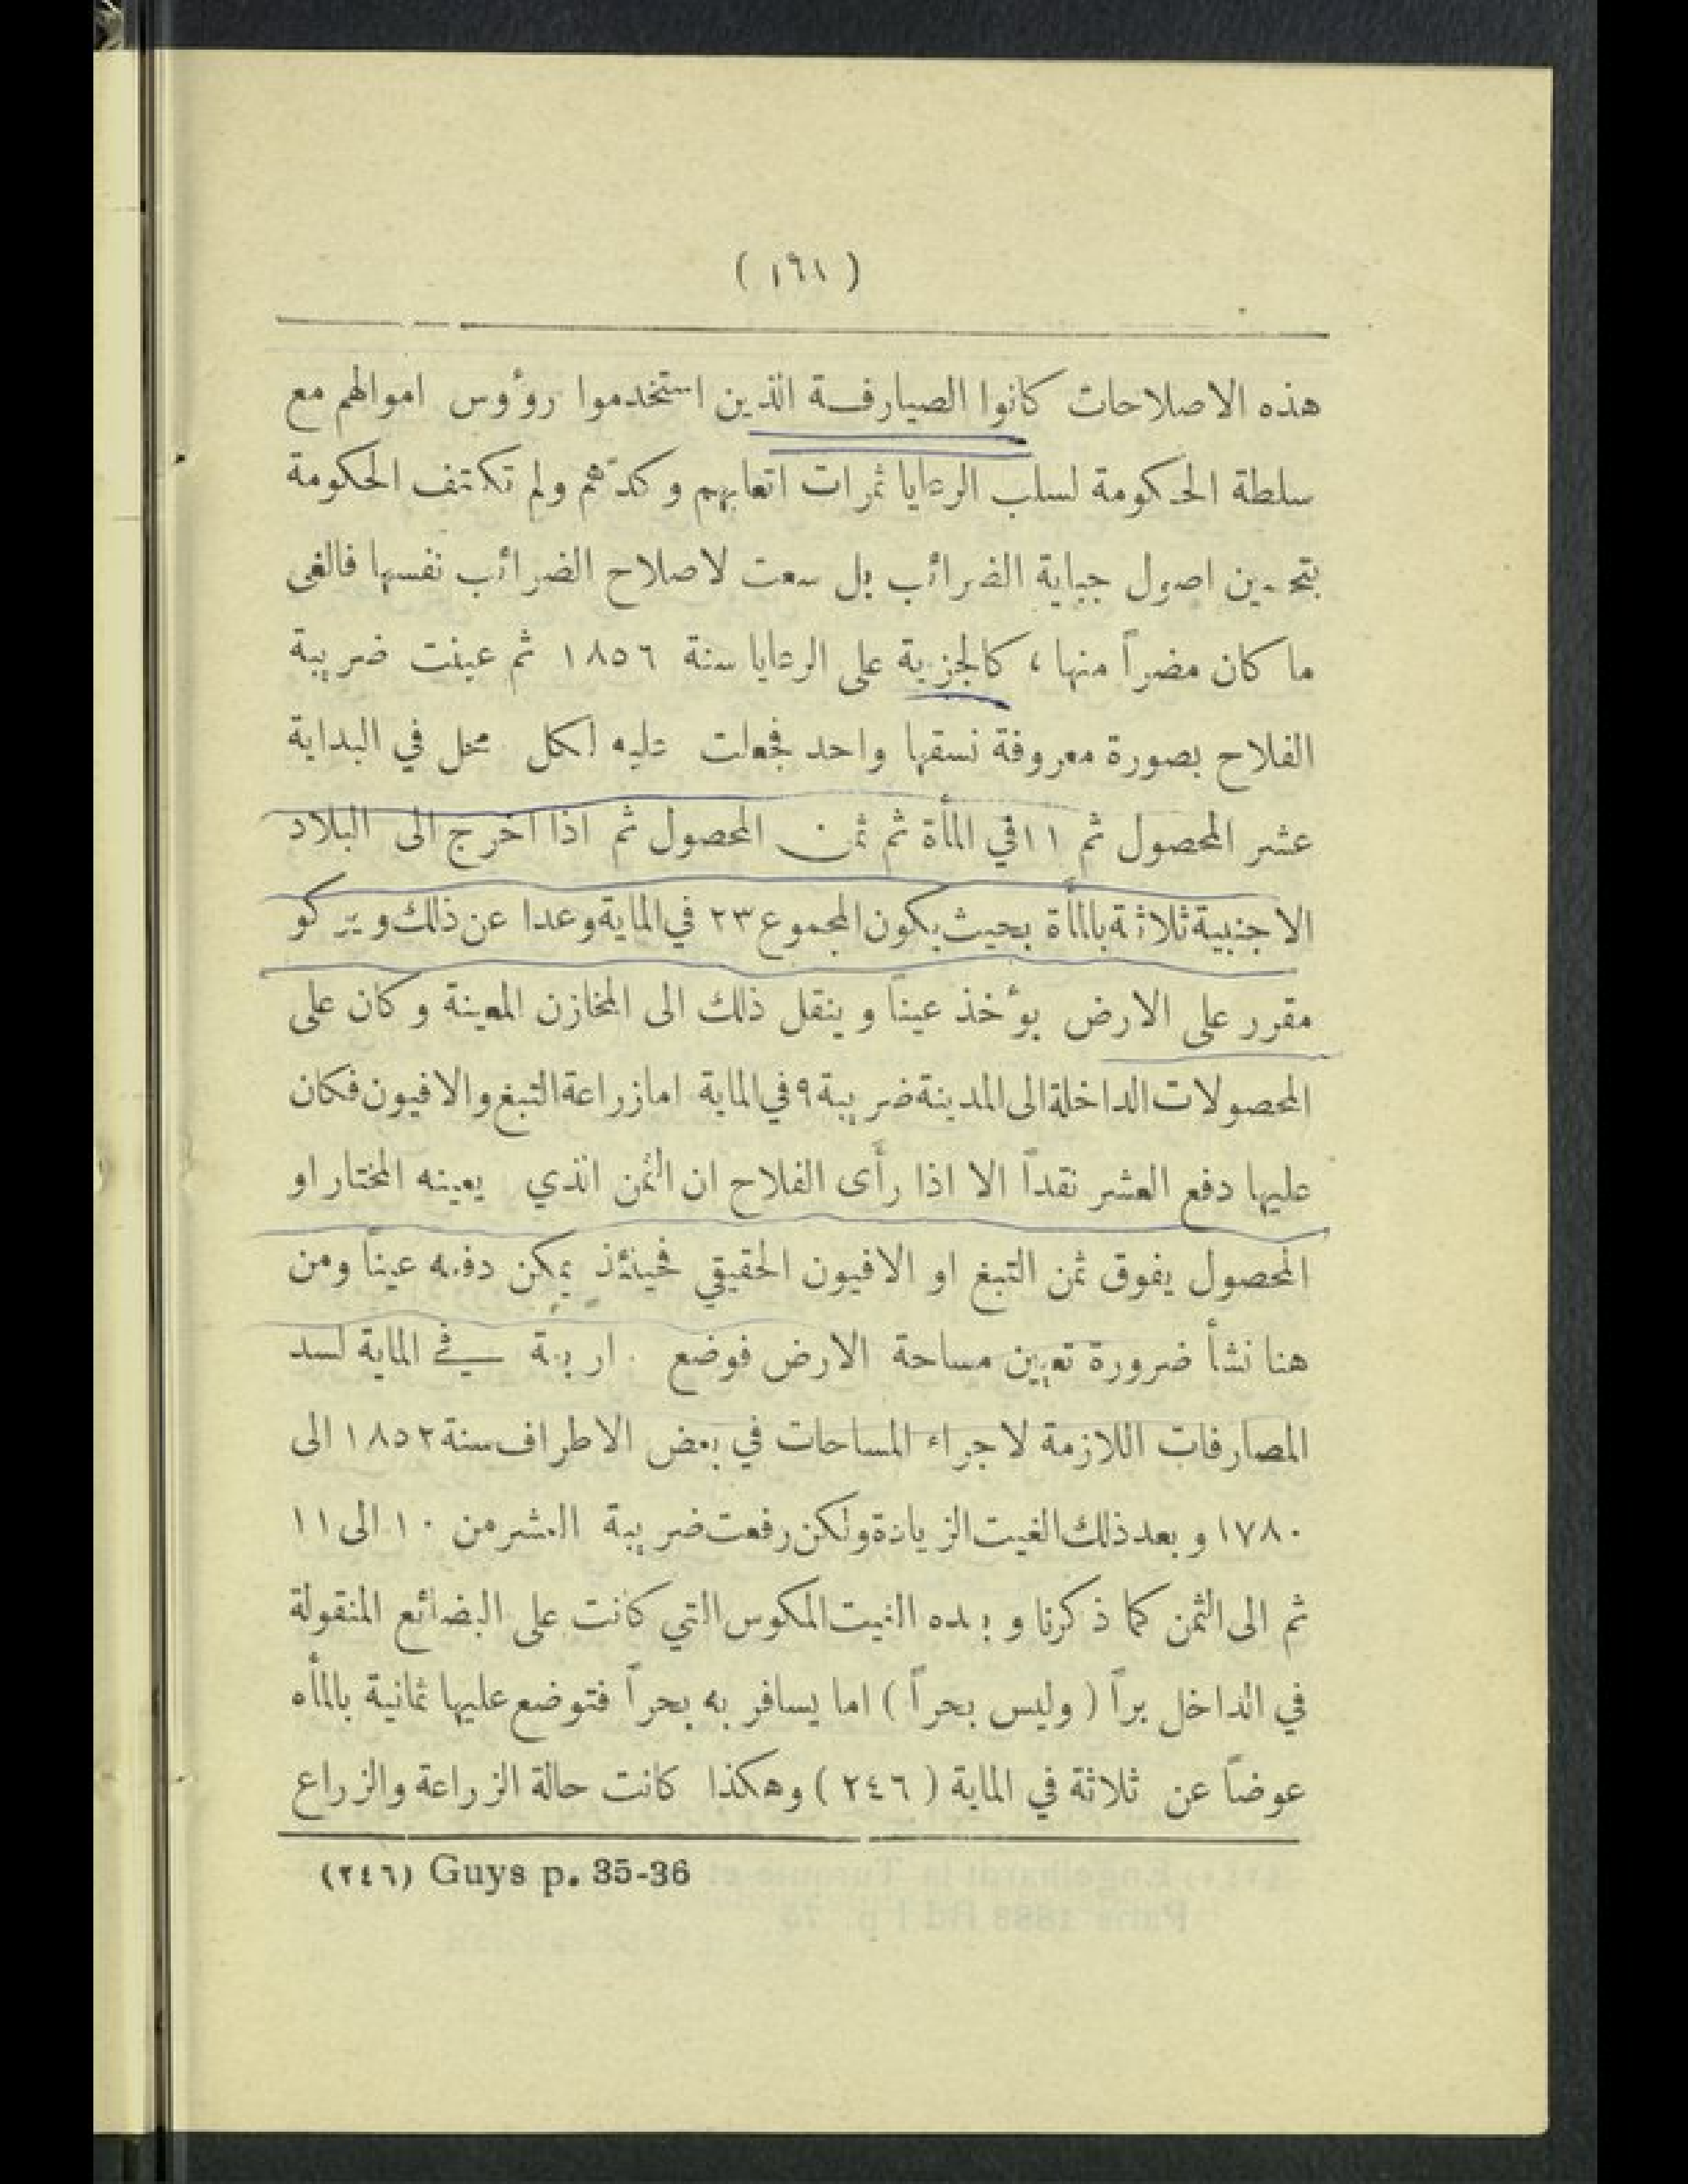 ( ١٦١ )
هذه الاصلاحات كانوا الصيارفة الذين استخدموا رؤوس اموالهم مع
سلطة الحكومة لسلب الرعايا ثمرات اتعابهم وكدّهم ولم تكتف الحكومة
بتحسين اصول جباية الضرائب بل سعت لاصلاح الضرائب نفسها فالغى
ما كان مضراً منها ، كالجزية على الرعايا سنة ١٨٥٦ ثم عينت ضريبة
الفلاح بصورة معروفة نسقها واحد فجعلت عليه لكل محل في البداية
عشر المحصول ثم ١١ في المأة ثم ثمن المحصول ثم اذا اخرج الى البلاد
الاجنبية ثلاثة بالمأة بحيث يكون المجموع ٢٣ في الماية وعدا عن ذلك ويركو
مقرر على الارض يؤخذ عيناً وينقل ذلك الى المخازن المعينة وكان على
المحصولات الداخلة الى المدينة ضريبة ٩ في الماية اما زراعة التبغ والافيون فكان
عليها دفع العشر نقداً الا اذا رأى الفلاح ان الثمن الذي يعينه المختار او
المحصول يفوق ثمن التبغ او الافيون الحقيقي فحينئذ يمكن دفعه عيناً ومن
هنا نشأ ضرورة تعيين مساحة الارض فوضع اربعة في الماية لسد
المصارفات اللازمة لاجراء المساحات في بعض الاطراف سنة ١٨٥٢ الى
١٧٨٠ وبعد ذلك الغيت الزيادة ولكن رفعت ضريبة العشر من ١٠ الى ١١
ثم الى الثمن كما ذكرنا وبعده الغيت المكوس التي كانت على البضائع المنقولة
في الداخل براً ( وليس بحراً ) اما يسافر به بحراً فتوضع عليها ثمانية بالمأه
عوضاً عن ثلاثة في الماية ( ٢٤٦ ) وهكذا كانت حالة الزراعة والزراع
(٢٤٦) Guys p. 35-36